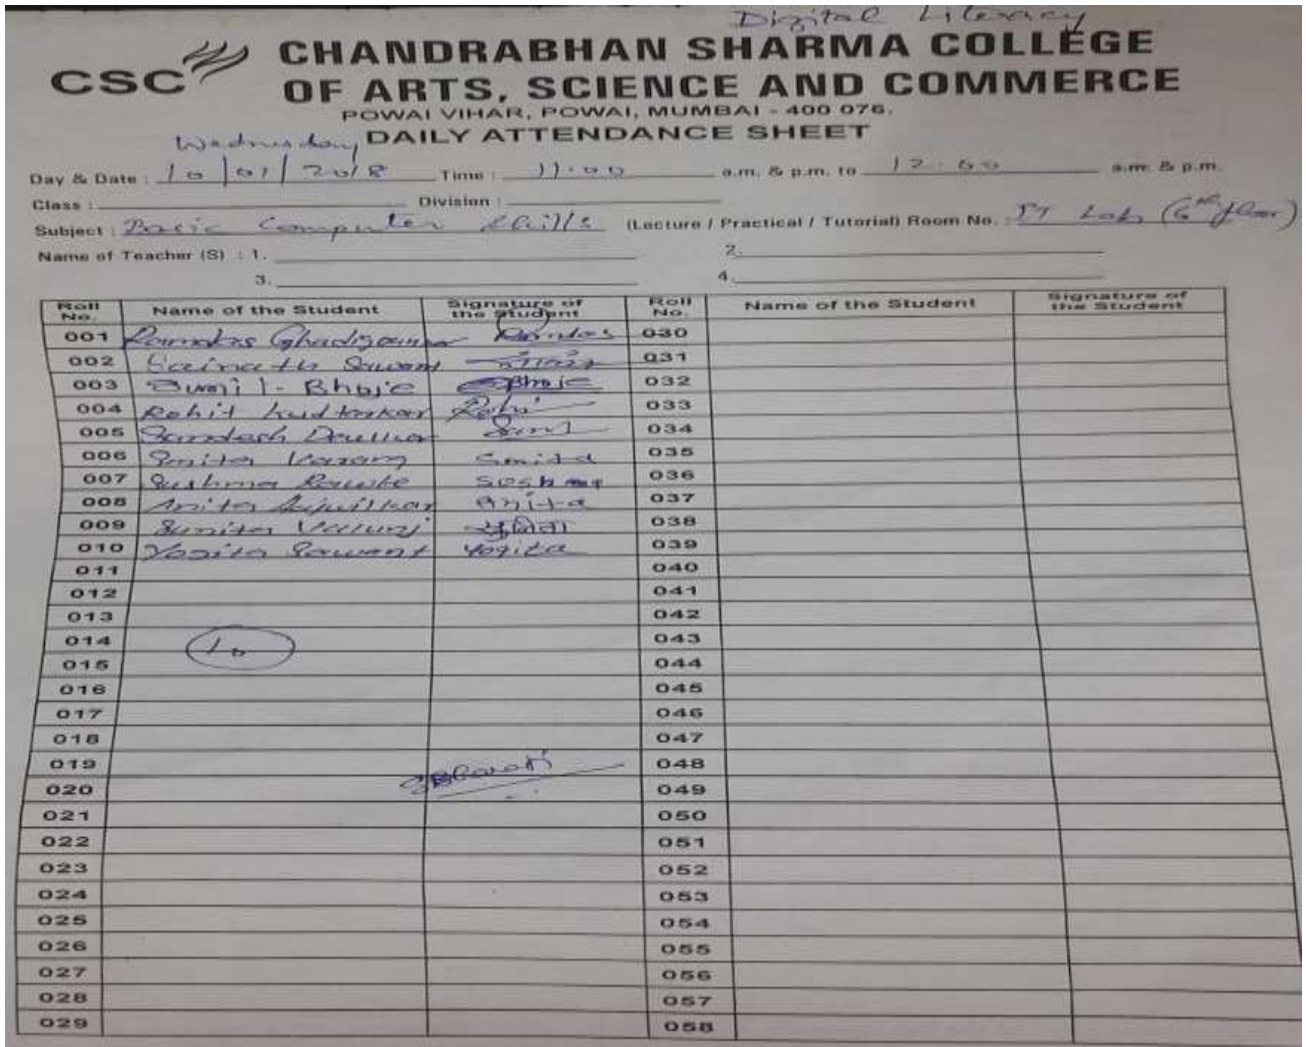 Digital Literacy
CSC
CHANDRABHAN SHARMA COLLEGE
OF ARTS, SCIENCE AND COMMERCE
POWAI VIHAR, POWAI, MUMBAI - 400 076.
DAILY ATTENDANCE SHEET
Wednesday
Day & Date : 10/01/2018 Time : 11.00 a.m. & p.m. to 12.00 a.m. & p.m.
Class : Division :
Subject : Basic Computer Skills (Lecture / Practical / Tutorial) Room No. : Lab (6th floor)
Name of Teacher (S) : 1. 2.
3. 4.
Roll No. Name of the Student Signature of the Student Roll No. Name of the Student Signature of the Student
001 Ramdas Ramdas 030
002 Sainath Sawant 031
003 Sunil Bhoje Bhoje 032
004 Rohit Rohi 033
005 Sandesh 034
006 Smita Smita 035
007 Sushma Sushma 036
008 Anita Anita 037
009 Sunita सुनिता 038
010 Yogita Sawant Yogita 039
011 040
012 041
013 042
014 10 043
015 044
016 045
017 046
018 047
019 048
020 049
021 050
022 051
023 052
024 053
025 054
026 055
027 056
028 057
029 058